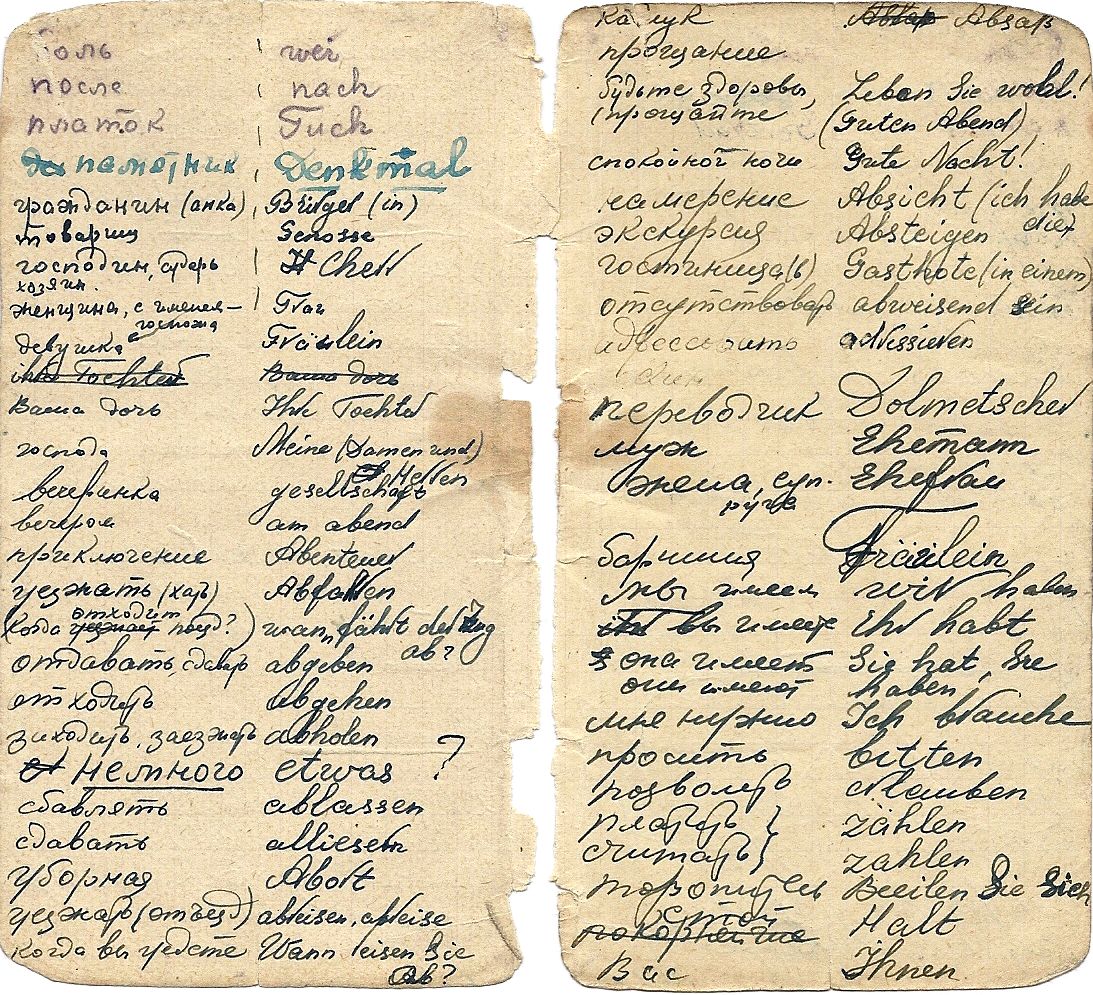 боль wei
после nach
платок Tuch
памятник Denkmal
гражданин (анка) Bürger (in)
товарищ Genosse
господин, сударь Herr
хозяин.
женщина, с именем— Frau
госпожа
девушка Fräulein
ihre Tochter Ваша дочь
Ваша дочь Ihre Tochter
господа Meine (Damen und)
Herren
вечеринка gesellschaft
вечером am abend
приключение Abenteuer
уезжать (хать) Abfahren
отходит
(когда уезжает поезд?) wann fährt der Zug
ab?
отдавать, сдавать abgeben
отходить abgehen
заходить, заезжать abholen
немного etwas ?
сбавлять ablassen
сдавать abliefern
уборная Abort
уезжать (отъезд) abreisen, abreise
когда вы уедете Wann reisen Sie
ab?
каблук Absatz
прощание
будьте здоровы, Leben Sie wohl!
(прощайте (Guten Abend)
спокойной ночи Gute Nacht!
намерение Absicht (ich habe
die)
экскурсия Absteigen
гостиница (в) Gasthote (in einem)
отсутствовать abweisend sein
adrissieren
переводчик Dolmetscher
муж Ehemann
жена, суп- Ehefrau
руга
барышня Fräulein
мы имеем wir haben
вы имеете Ihr habt
она имеет Sie hat, Sie
они имеют haben
мне нужно Ich brauche
просить bitten
позволять erlauben
платить } zählen
считать } zahlen
торопитесь Beeilen Sie Sich
стой Halt
Вас Ihnen